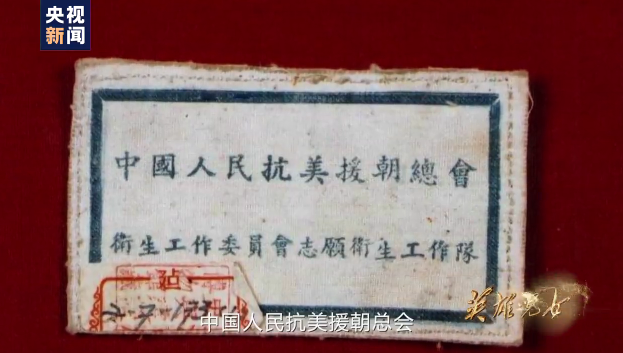 央视
新闻
中國人民抗美援朝總會
衛生工作委員會志願衛生工作隊
英雄儿女
中国人民抗美援朝总会